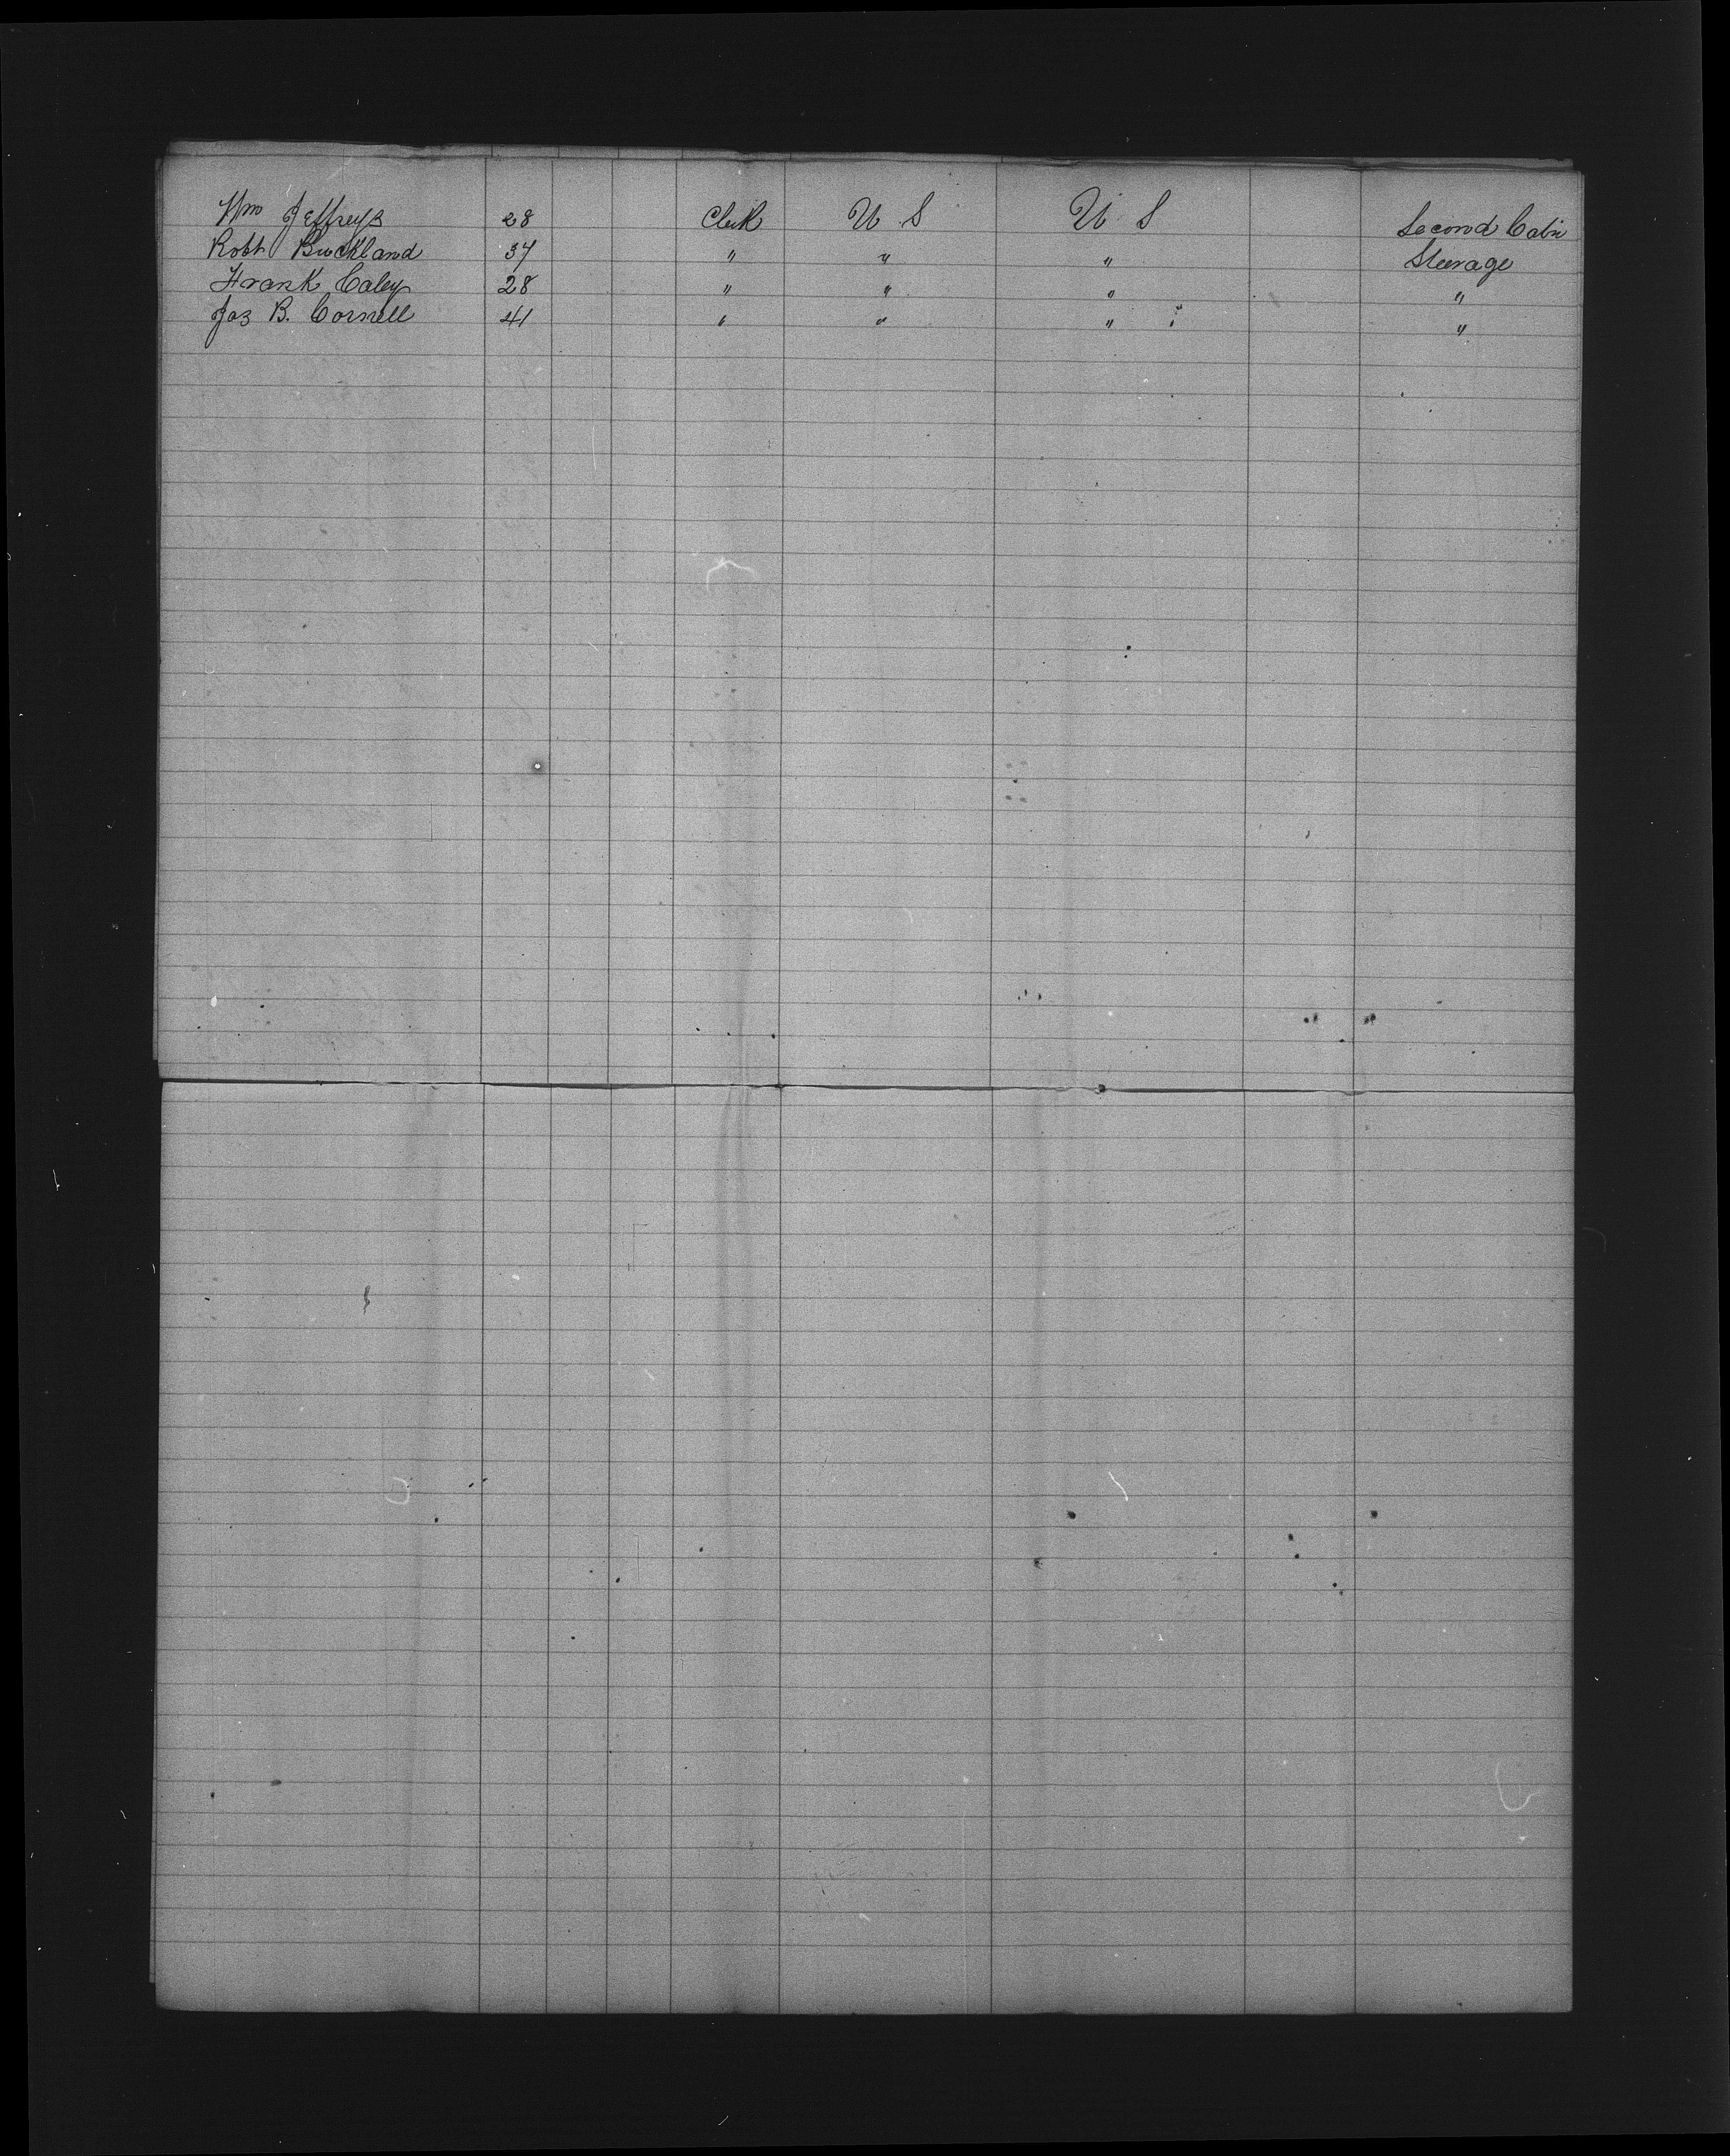 Wm Jeffreys 28 Clerk U S U S Second Cabin
Robt Buckland 37 " " " Steerage
Frank Caley 28 " " " "
Jas B. Cornell 41 " " " "